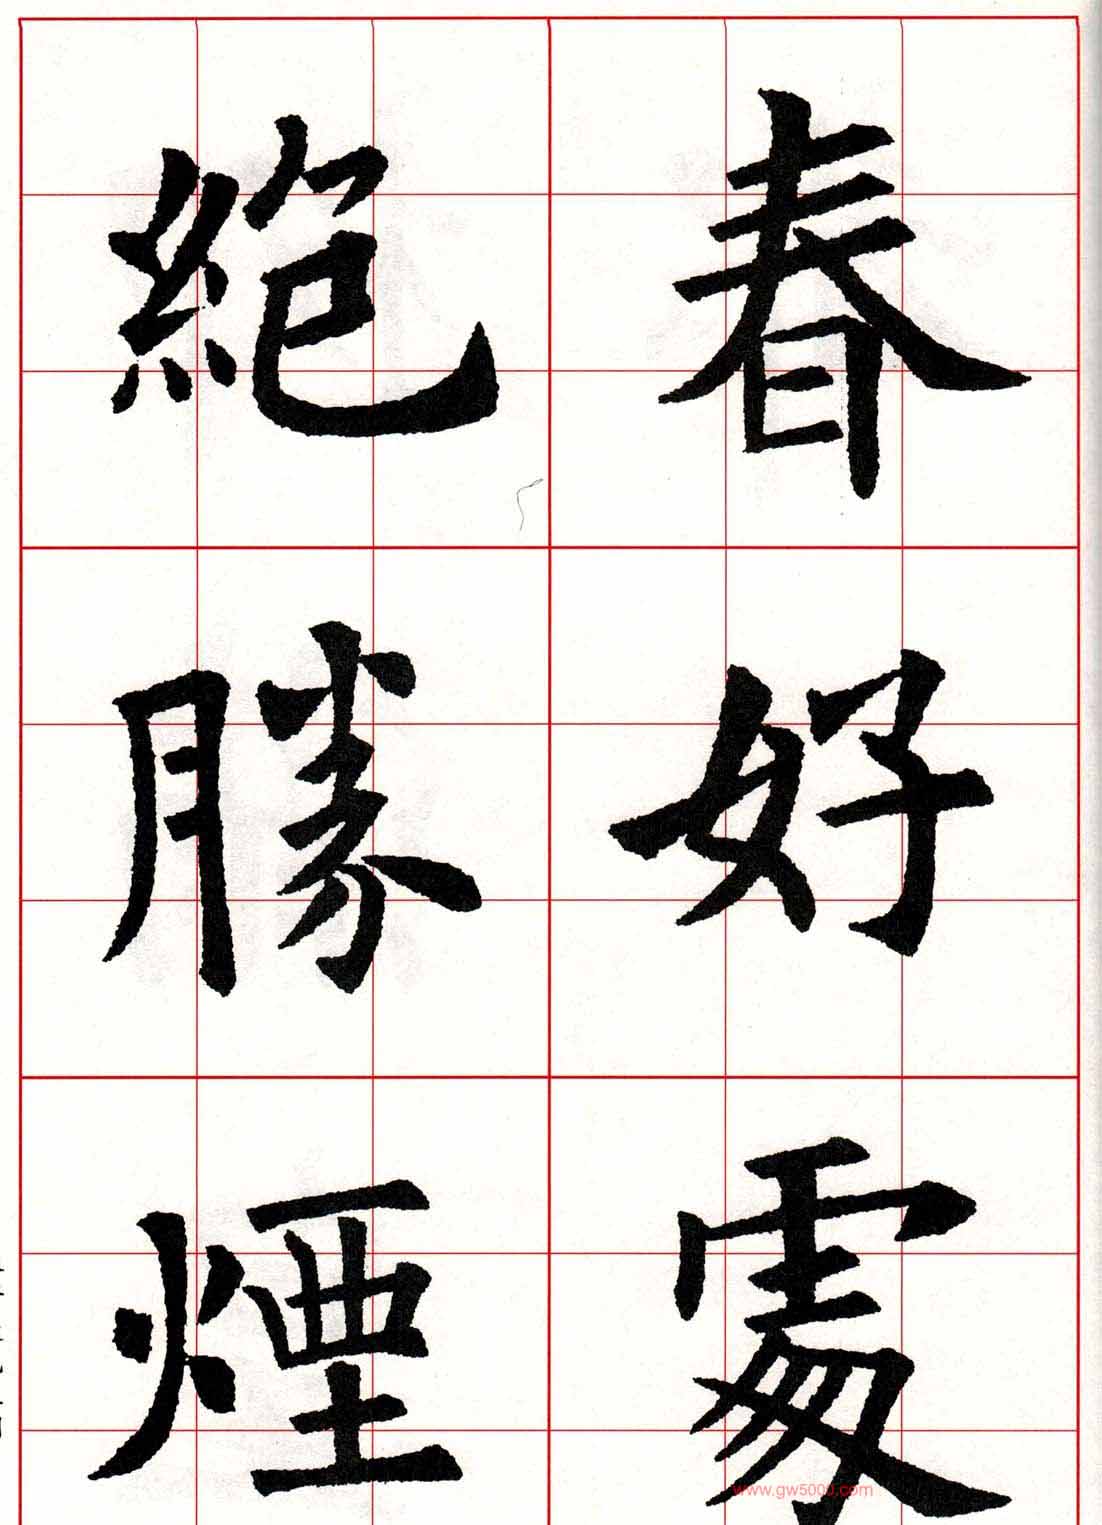 春好處
絶勝煙
www.gw5000.com